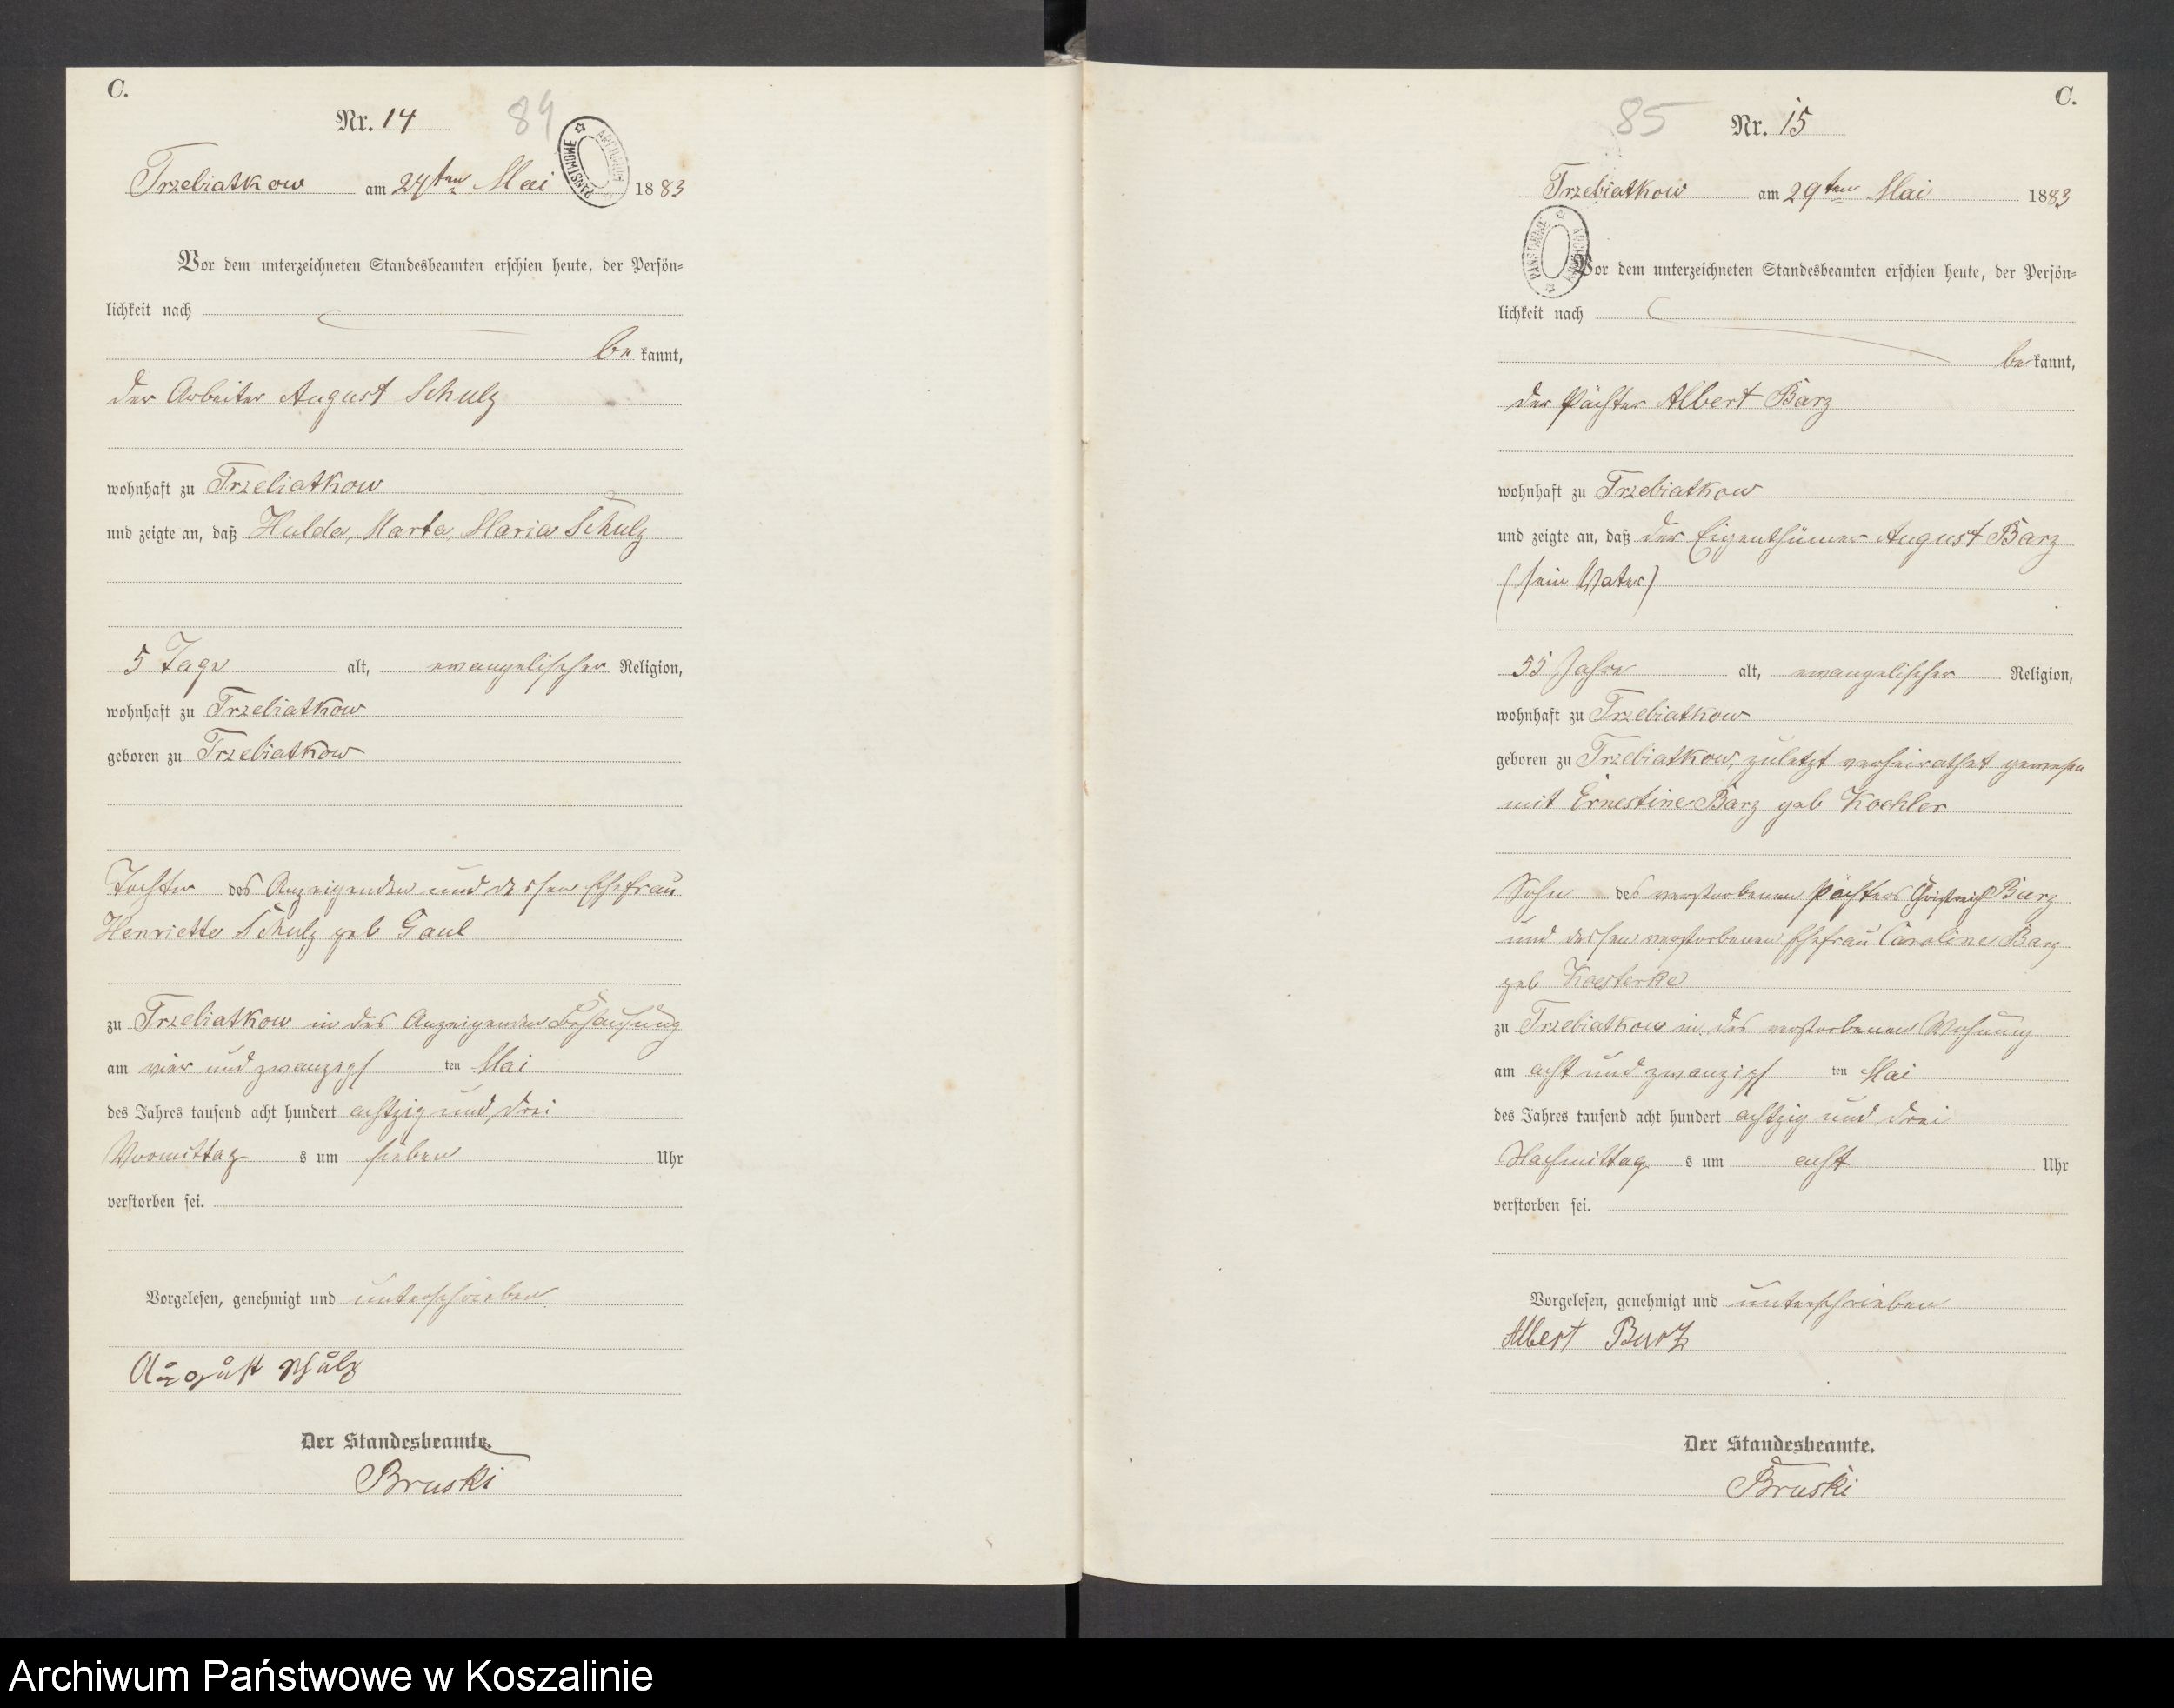 C.
Nr. 14
84
ARCHIWUM PAŃSTWOWE
Trzebiatkow am 24ten Mai 1883
Vor dem unterzeichneten Standesbeamten erschien heute, der Persön-
lichkeit nach
be kannt,
der Arbeiter August Schulz
wohnhaft zu Trzebiatkow
und zeigte an, daß Hulda, Marta, Maria Schulz
5 Tage alt, evangelischer Religion,
wohnhaft zu Trzebiatkow
geboren zu Trzebiatkow
Tochter des Anzeigenden und dessen Ehefrau
Henriette Schulz geb Gaul
zu Trzebiatkow in des Anzeigenden Behausung
am vier und zwanzigs ten Mai
des Jahres tausend acht hundert achtzig und drei
Vormittag s um sieben Uhr
verstorben sei.
Vorgelesen, genehmigt und unterschrieben
August Schulz
Der Standesbeamte.
Bruski
C.
85
Nr. 15
Trzebiatkow am 29ten Mai 1883
ARCHIWUM PAŃSTWOWE
Vor dem unterzeichneten Standesbeamten erschien heute, der Persön-
lichkeit nach
be kannt,
der Pächter Albert Barz
wohnhaft zu Trzebiatkow
und zeigte an, daß der Eigenthümer August Barz
(sein Vater)
55 Jahre alt, evangelischer Religion,
wohnhaft zu Trzebiatkow
geboren zu Trzebiatkow, zuletzt verheirathet gewesen
mit Ernestine Barz geb Koehler
Sohn des verstorbenen Pächters Barz
und dessen verstorbenen Ehefrau Caroline Barz
geb Koesterke
zu Trzebiatkow in des verstorbenen Wohnung
am acht und zwanzigs ten Mai
des Jahres tausend acht hundert achtzig und drei
Nachmittag s um acht Uhr
verstorben sei.
Vorgelesen, genehmigt und unterschrieben
Albert Barz
Der Standesbeamte.
Bruski
Archiwum Państwowe w Koszalinie